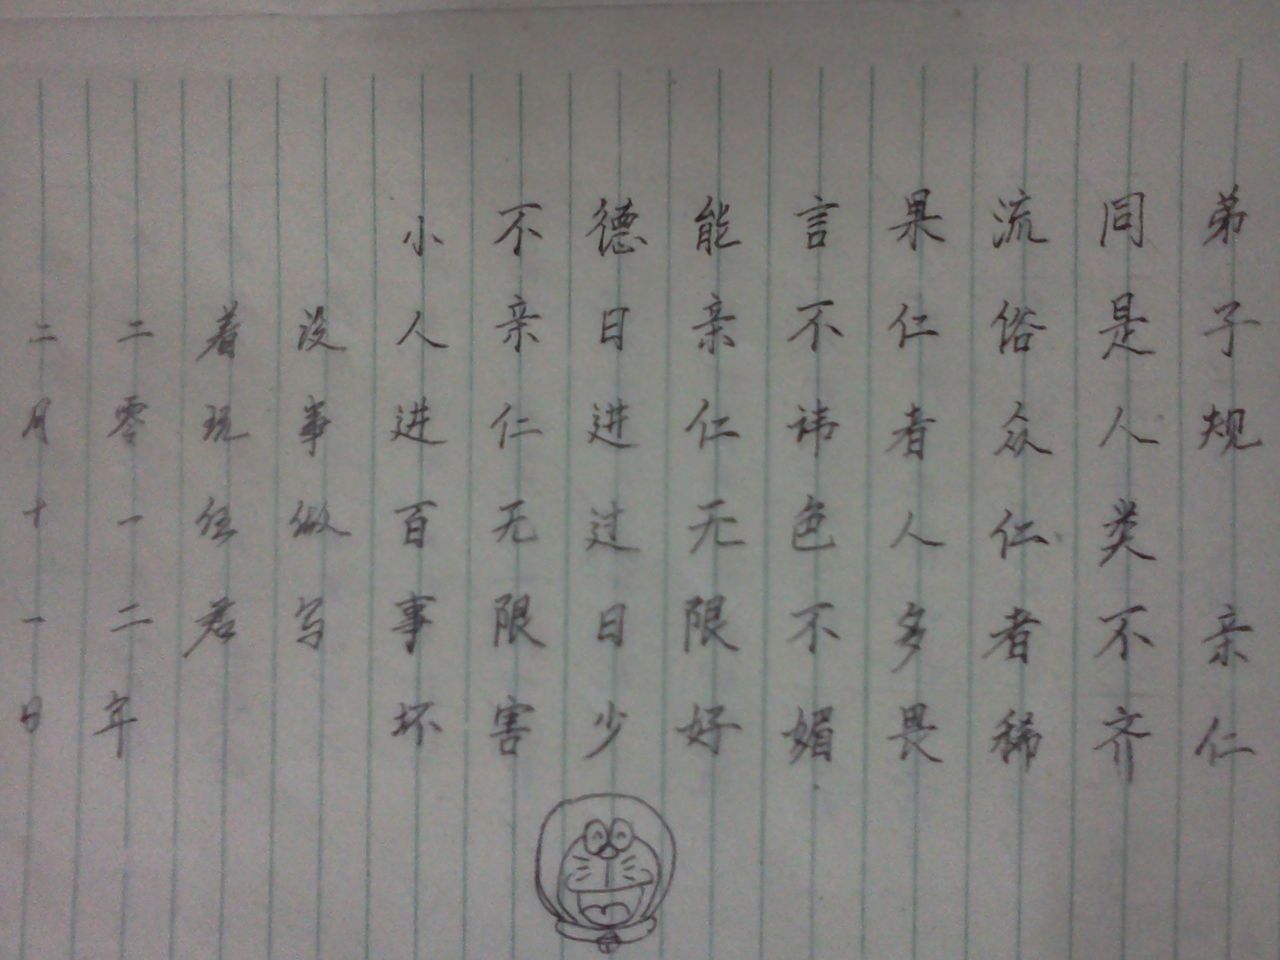 弟子规 亲仁
同是人类不齐
流俗众仁者稀
果仁者人多畏
言不讳色不媚
能亲仁无限好
德日进过日少
不亲仁无限害
小人进百事坏
没事做写
着玩伍君
二零一二年
二月十一日